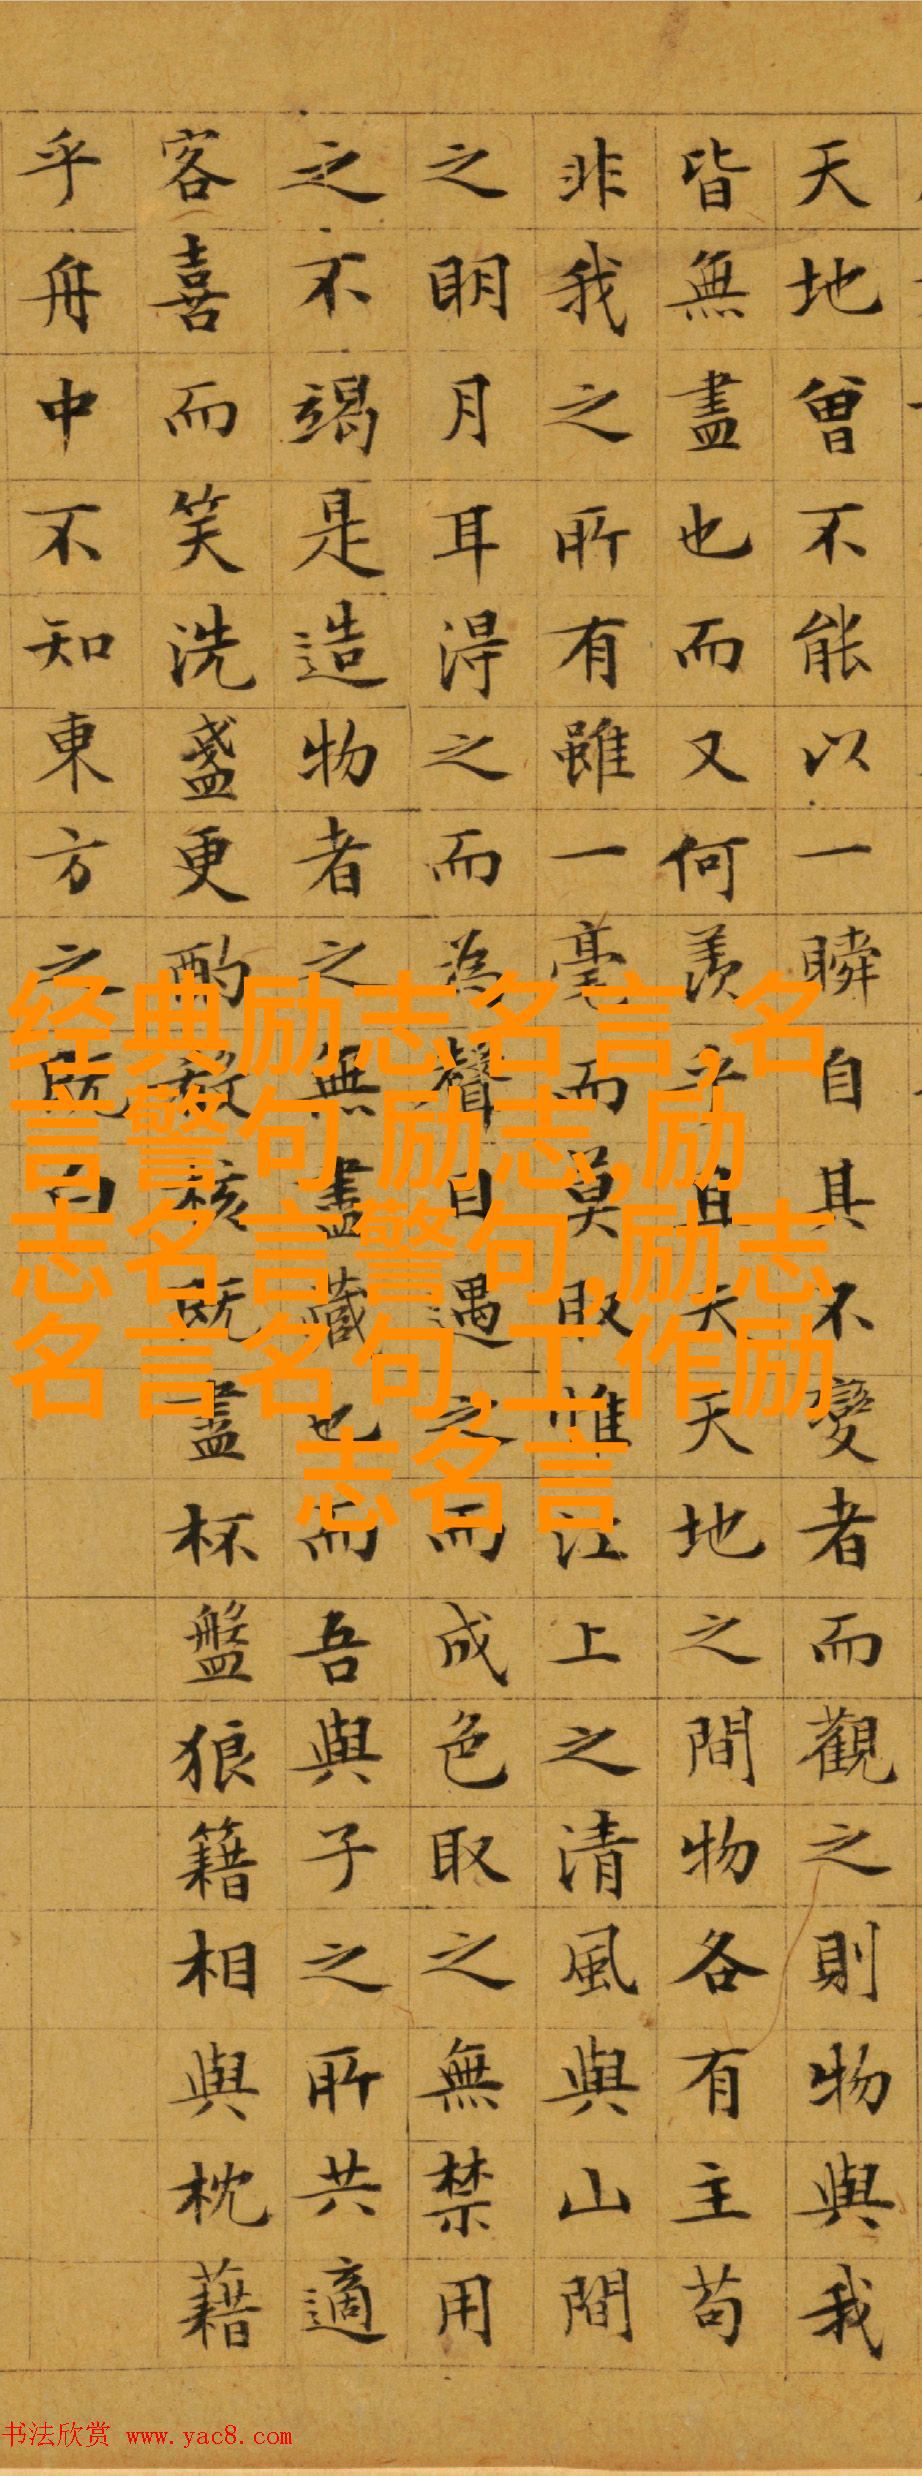 天地曾不能以一瞬自其不變者而觀之則物與我
皆無盡也而又何羨乎且夫天地之間物各有主苟
非我之所有雖一毫而莫取惟江上之清風與山間
之明月耳得之而為聲目遇之而成色取之無禁用
之不竭是造物者之無盡藏也而吾與子之所共適
客喜而笑洗盞更酌殽核既盡杯盤狼籍相與枕藉
乎舟中不知東方之既白
经典励志名言,名
言警句 励志,励
志名言警句,励志
名言名句,工作励
志名言
书法欣赏 www.yac8.com